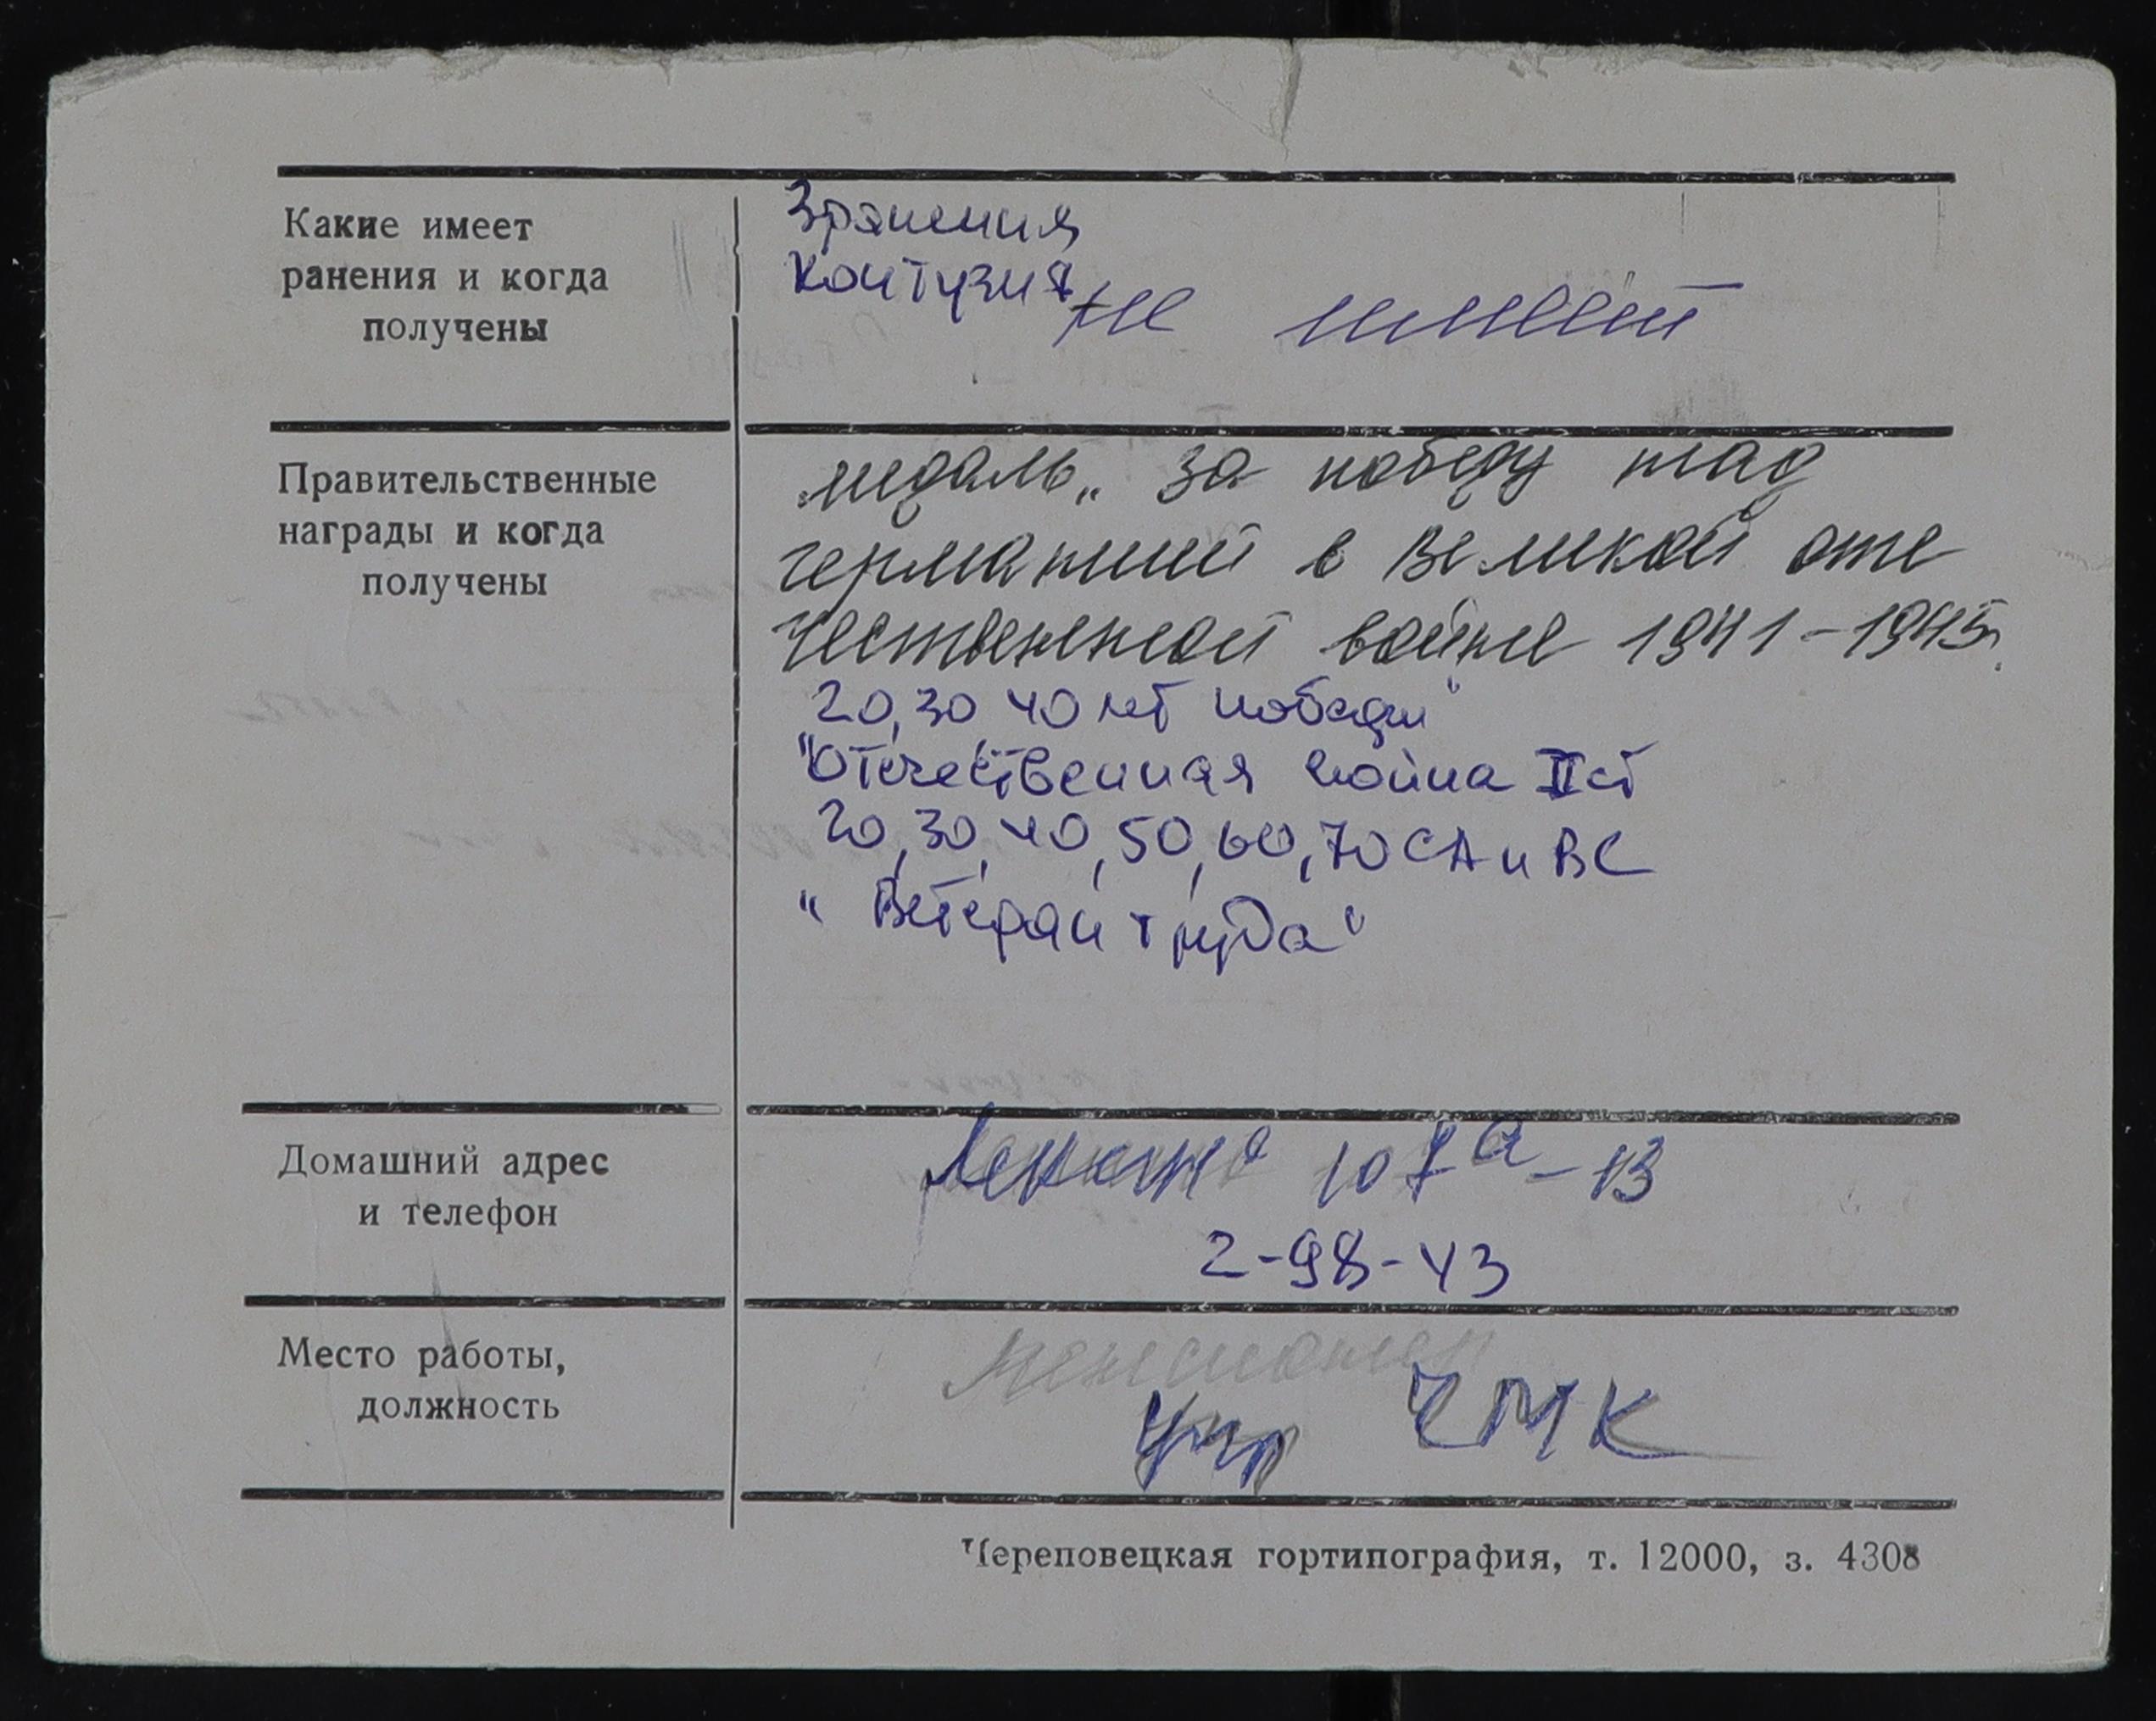 Какие имеет
ранения и когда
получены
3 ранения
контузия не имеет
Правительственные
награды и когда
получены
медаль „ за победу над
германией в великой оте
чественной войне 1941-1945г.
20,30 40 лет победы"
"Отечественная война II ст
20,30,40,50,60,70 СА и ВС
" Ветеран труда"
Домашний адрес
и телефон
Ленина 107а-13
2-98-43
Место работы,
должность
пенсионер
ЧМК
Череповецкая гортипография, т. 12000, з. 4308